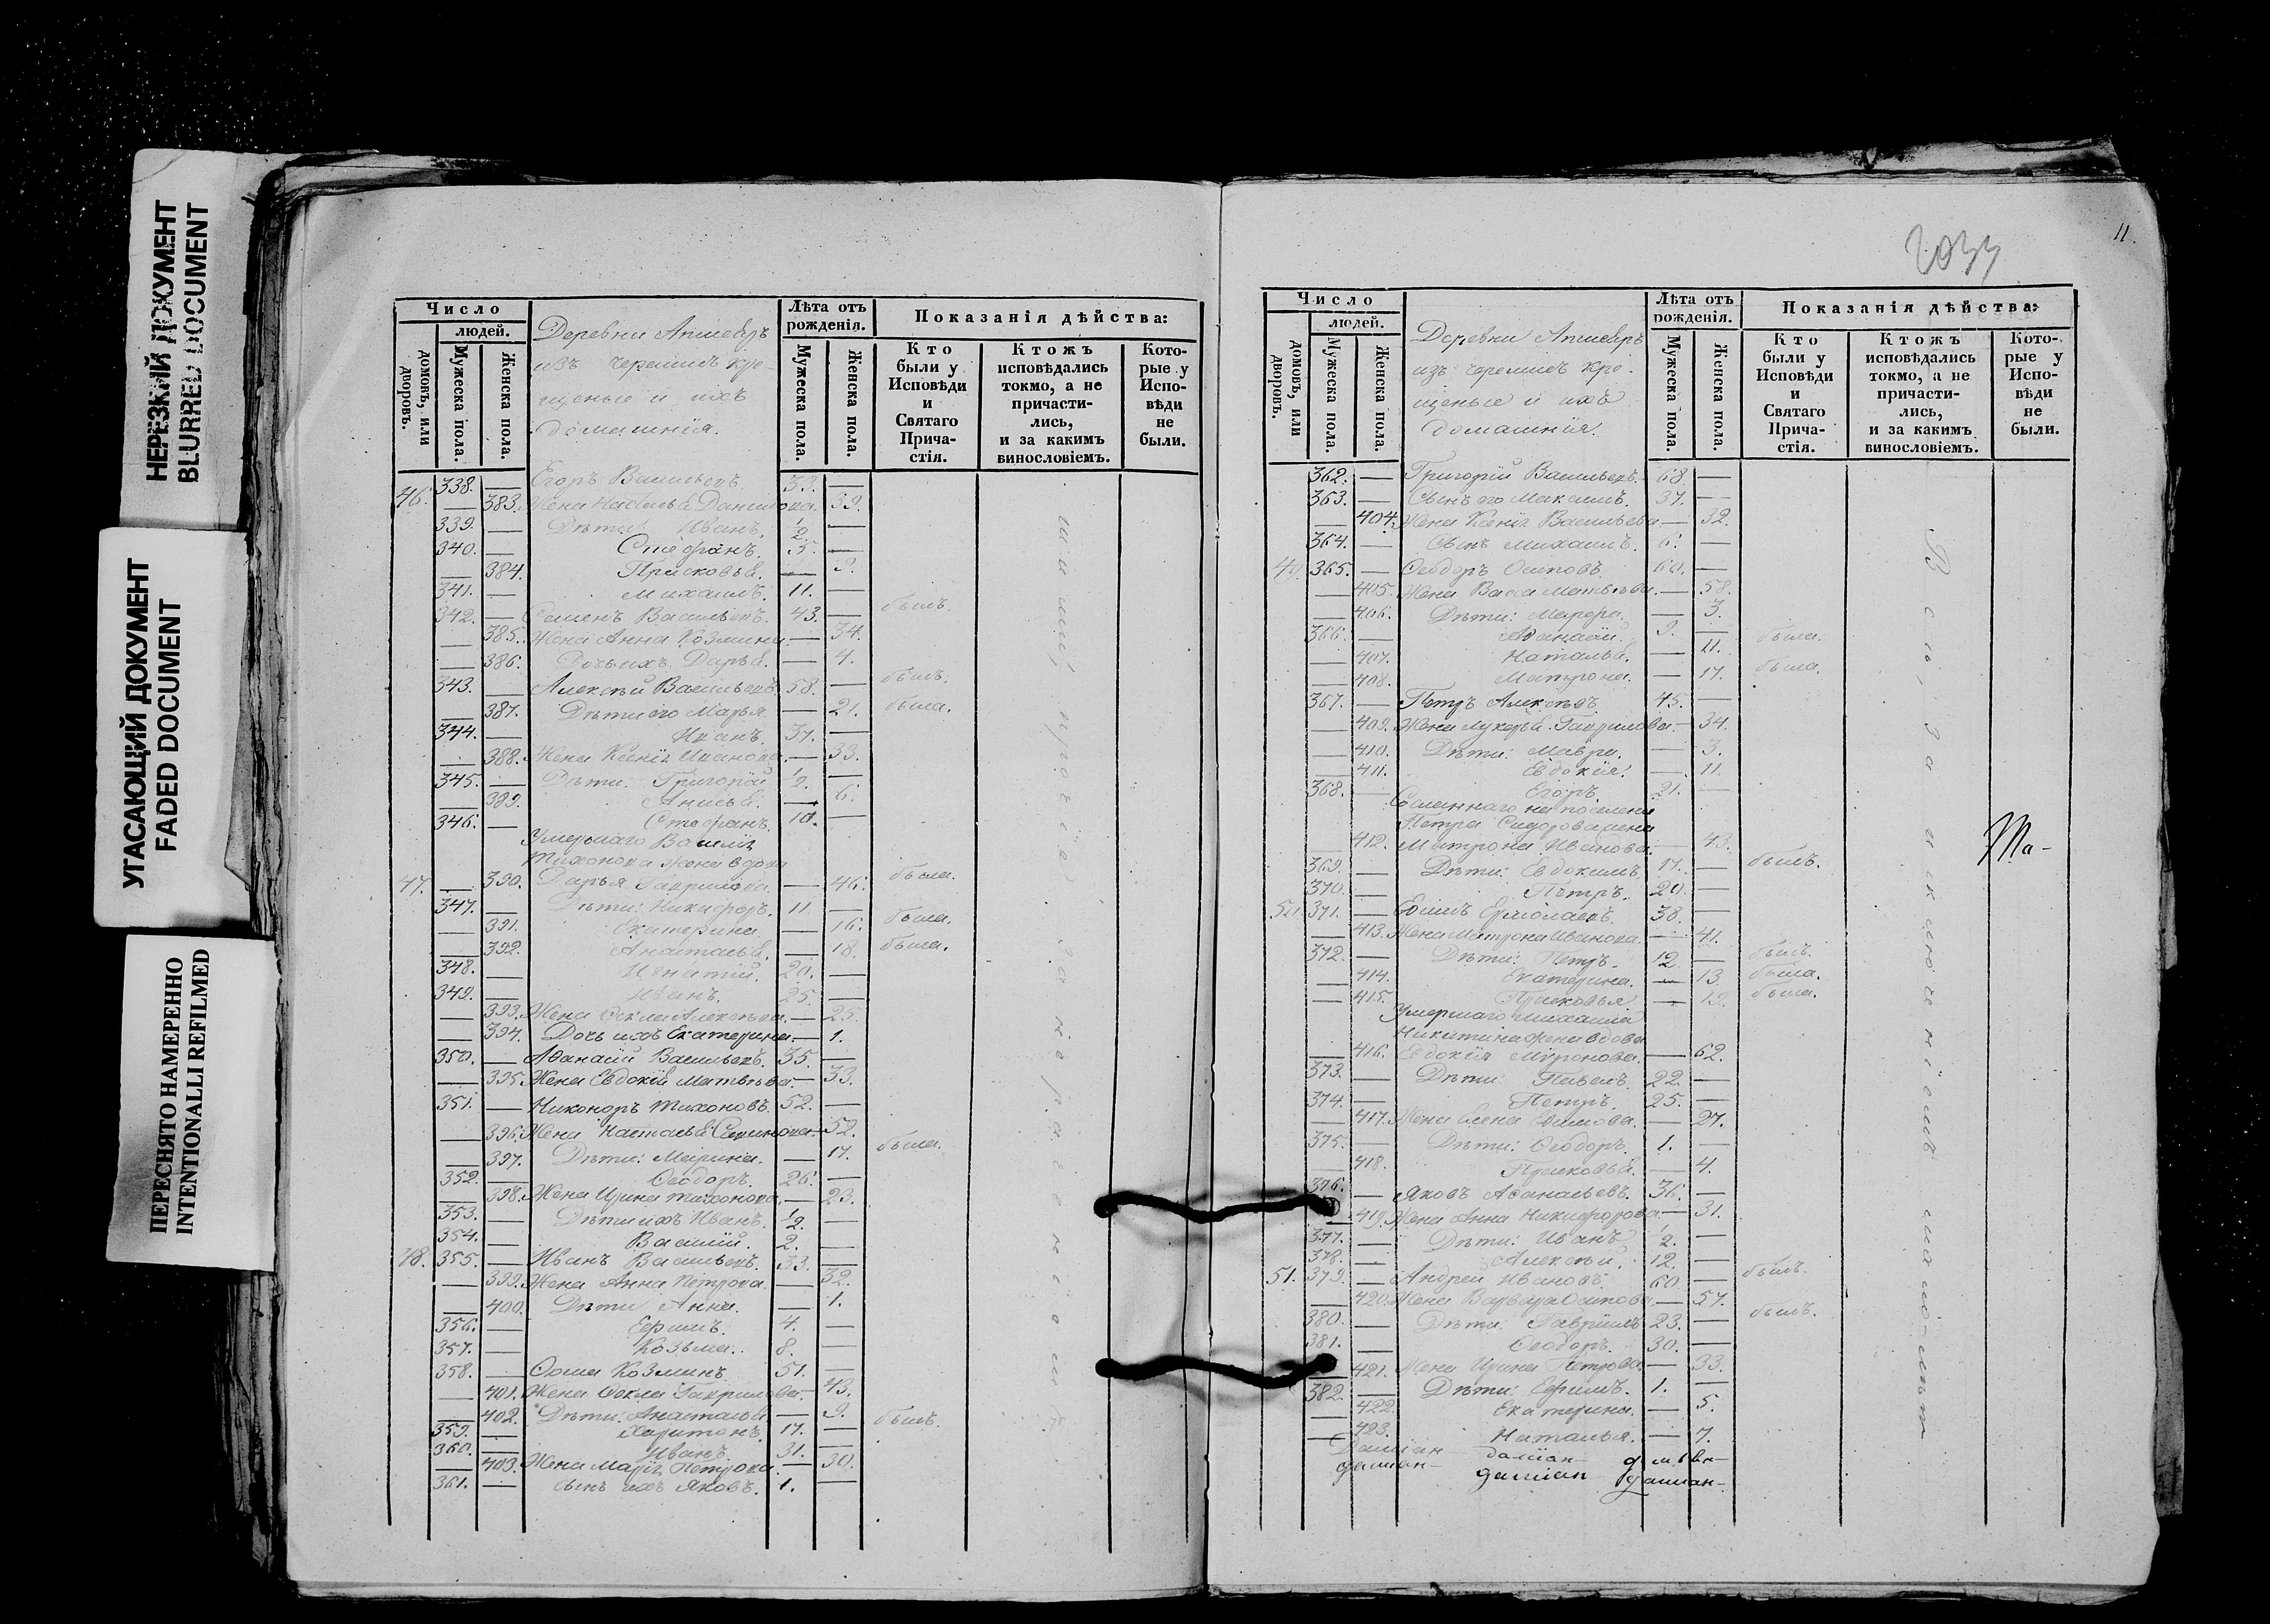 НЕРЕЗКИЙ ДОКУМЕНТ
BLURRED DOCUMENT
УГАСАЮЩИЙ ДОКУМЕНТ
FADED DOCUMENT
ПЕРЕСНЯТО НАМЕРЕННО
INTENTIONALLI REFILMED
Число
людей.
домовъ, или дворовъ.
Мужеска пола.
Женска пола.
Деревни
изъ черемисъ кре-
щеные и ихъ
домашнія.
Лѣта отъ рожденія.
Мужеска пола.
Женска пола.
Показанія дѣйства:
Кто были у Исповѣди и Святаго Прича-стія.
Ктожъ исповѣдались токмо, а не причасти-лись, и за какимъ винословіемъ.
Кото-рые у Испо-вѣди не были.
338. — Егоръ Васильевъ 33. —
46. — 383. Жена Наталья Данилова. — 39.
339. — Дѣти: Иванъ. 1/2. —
340. — Стефанъ. 5. —
— 384. Прасковья. — 9.
341. — Михаилъ. 11. —
342. — Семенъ Васильевъ. 43. — былъ.
— 385. Жена Анна Козмина — 34.
— 386. Дочь ихъ Дарья. — 4.
343. — Алексѣй Васильевъ. 58. — былъ.
— 387. Дѣти его Марья — 21. была.
344. — Иванъ. 37. —
— 388. Жена Ксенія Иванова. — 33.
345. — Дѣти: Григорій 1/2. —
— 389. — 6.
346. — Стефанъ. 10. —
Умершаго Василія
Тихонова жена вдова
47. — 390. Дарья Гаврилова. — 46. была.
347. — Дѣти: Никифоръ. 11 —
— 391. Екатерина. — 16. была.
— 392. Анастасья. — 18. была.
348. — Игнатій. 20. —
349. — Иванъ. 25. —
— 393. Жена Ѳекла Алексѣева. — 25.
— 394. Дочь ихъ Екатерина — 1.
350. — Аѳанасій Васильевъ. 35. —
— 395. Жена Евдокія Матвѣева — 33.
351. — Никоноръ Тихоновъ. 52. —
— 396. Жена Настасья Семенова — 52.
— 397. Дѣти: Марина. — 17. была.
352. — Ѳеодоръ. 26. —
— 398. Жена Ирина Тихонова. — 23.
353. — Дѣти ихъ Иванъ. 1/2. —
354. — Василій. 2. —
48. 355. — Иванъ Васильевъ. 33. —
— 399. Жена Анна Петрова. — 32.
— 400. Дѣти Анна. — 1.
356. — Ефимъ. 4. —
357. — Козьма. 8. —
358. — Ѳома Козминъ. 51. —
— 401. Жена Ѳекла Гаврилова. — 43.
— 402. Дѣти: Анастасья — 9.
359. — Харитонъ. 17. — былъ.
360. — Иванъ. 31. —
— 403. Жена Марія Петрова. — 30.
361. — Сынъ ихъ Яковъ. 1. —
11.
Число
людей.
домовъ, или дворовъ.
Мужеска пола.
Женска пола.
Деревни
изъ черемисъ кре-
щеные и ихъ
домашнія.
Лѣта отъ рожденія.
Мужеска пола.
Женска пола.
Показанія дѣйства:
Кто были у Исповѣди и Святаго Прича-стія.
Ктожъ исповѣдались токмо, а не причасти-лись, и за какимъ винословіемъ.
Кото-рые у Испо-вѣди не были.
362. — Григорій Васильевъ. 68. —
363. — Сынъ его Максимъ. 37. —
— 404. Жена Ксенія Васильева — 32.
364. — Сынъ Михаилъ. 6. —
49. 365. — Ѳеодоръ Осиповъ. 60. —
— 405. Жена Васса Матвѣева. — 58.
— 406. Дѣти: Марѳа. — 3.
366. — Аѳанасій. 9. — была.
— 407. Наталья. — 11.
— 408. Матрона. — 17. была.
367. — Петръ Алексѣевъ. 45. —
— 409. Жена Лукерья Гаврилова — 34.
— 410. Дѣти: Мавра. — 3.
— 411. Евдокія. — 11.
368. — Егоръ. 21. —
Сосланнаго на поселеніе
Петра Сидорова жена
— 412. Матрона Иванова. — 43.
369. — Дѣти: Евдокимъ 17. — былъ.
370. — Петръ. 20. —
50. 371. — Ермолаевъ. 38. —
— 413. Жена Матрона Иванова. — 41.
372. — Дѣти: Петръ. 12. — былъ.
— 414. Екатерина. — 13. была.
— 415. Прасковья — была.
Умершаго Михаила
Никитина жена вдова
— 416. Евдокія Миронова. — 62.
373. — Дѣти: Павелъ. 22. —
374. — Петръ. 25. —
— 417. Жена Елена — 27.
375. — Дѣти: Ѳеодоръ. 1. —
— 418. Прасковья. — 4.
376. — Яковъ Аѳанасьевъ. 36. —
— 419. Жена Анна Никифорова — 31.
377. — Дѣти: Иванъ 1/2. —
378. — Алексѣй. 12. —
51. 379. — Андрей Ивановъ. 60. — былъ.
— 420. Жена Варвара Осипова — 57.
380. — Дѣти: Гаврилъ 23. — былъ.
381. — Ѳеодоръ. 30. —
— 421. Жена Ирина Петрова. — 33.
382. — Дѣти: Ефимъ. 1. —
— 422. Екатерина. — 5.
— 423. Наталья. — 7.
Всѣ, за исключеніемъ